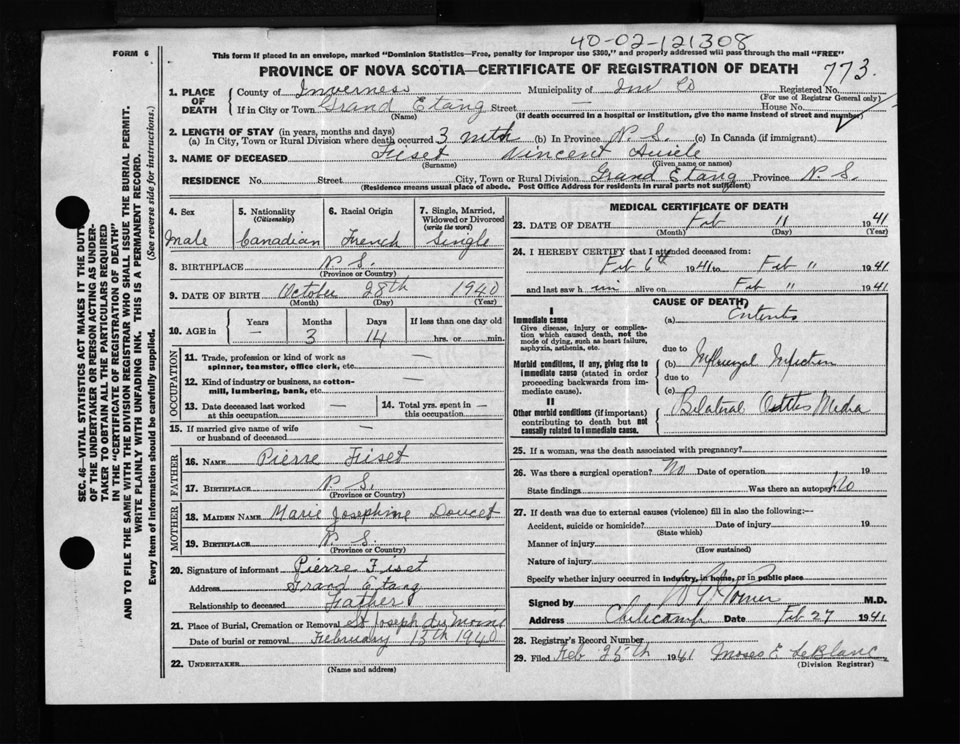 FORM 6
40-02-121308
This form if placed in an envelope, marked "Dominion Statistics—Free, penalty for improper use $300," and properly addressed will pass through the mail "FREE"
PROVINCE OF NOVA SCOTIA—CERTIFICATE OF REGISTRATION OF DEATH 773.
1. PLACE OF DEATH County of Inverness Municipality of Inv Co Registered No.
(For use of Registrar General only)
If in City or Town Grand Etang Street — House No.
(Name) (If death occurred in a hospital or institution, give the name instead of street and number)
2. LENGTH OF STAY (in years, months and days)
(a) In City, Town or Rural Division where death occurred 3 mth (b) In Province N. S. (c) In Canada (if immigrant)
3. NAME OF DECEASED Fiset Vincent
(Surname) (Given name or names)
RESIDENCE No. Street City, Town or Rural Division Grand Etang Province N. S.
(Residence means usual place of abode. Post Office Address for residents in rural parts not sufficient)
4. Sex 5. Nationality (Citizenship) 6. Racial Origin 7. Single, Married, Widowed or Divorced (write the word)
Male Canadian French Single
8. BIRTHPLACE N. S.
(Province or Country)
9. DATE OF BIRTH October 28th 1940
(Month) (Day) (Year)
10. AGE in Years Months Days If less than one day old
— 3 14 hrs. or min.
OCCUPATION
11. Trade, profession or kind of work as spinner, teamster, office clerk, etc. —
12. Kind of industry or business, as cotton-mill, lumbering, bank, etc. —
13. Date deceased last worked at this occupation — 14. Total yrs. spent in this occupation. —
15. If married give name of wife or husband of deceased —
FATHER
16. NAME Pierre Fiset
17. BIRTHPLACE N. S.
(Province or Country)
MOTHER
18. MAIDEN NAME Marie Josephine Doucet
19. BIRTHPLACE N. S.
(Province or Country)
20. Signature of informant Pierre Fiset
Address Grand Etang
Relationship to deceased Father
21. Place of Burial, Cremation or Removal St Joseph du Moine
Date of burial or removal February 13th 1940
22. UNDERTAKER
(Name and address)
MEDICAL CERTIFICATE OF DEATH
23. DATE OF DEATH Feb 11 1941
(Month) (Day) (Year)
24. I HEREBY CERTIFY that I attended deceased from:
Feb 6th 1941 to Feb 11 1941
and last saw h im alive on Feb 11 1941
CAUSE OF DEATH
I
Immediate cause (a) Enteritis
Give disease, injury or complication which caused death, not the mode of dying, such as heart failure, asphyxia, asthenia, etc.
due to
Morbid conditions, if any, giving rise to immediate cause (stated in order proceeding backwards from immediate cause). (b) Influenzal Infection
due to
(c)
II
Other morbid conditions (if important) contributing to death but not causally related to immediate cause. Bilateral Otitis Media
25. If a woman, was the death associated with pregnancy?
26. Was there a surgical operation? No Date of operation 19
State findings Was there an autopsy No
27. If death was due to external causes (violence) fill in also the following:—
Accident, suicide or homicide? Date of injury 19
(State which)
Manner of injury
(How sustained)
Nature of injury
Specify whether injury occurred in industry, in home, or in public place
Signed by M.D.
Address Cheticamp Date Feb 27 1941
28. Registrar's Record Number
29. Filed Feb 25th 1941 Moses E. LeBlanc
(Division Registrar)
SEC. 46—VITAL STATISTICS ACT MAKES IT THE DUTY
OF THE UNDERTAKER OR PERSON ACTING AS UNDER-
TAKER TO OBTAIN ALL THE PARTICULARS REQUIRED
IN THE "CERTIFICATE OF REGISTRATION OF DEATH" AND
TO FILE THE SAME WITH THE DIVISION REGISTRAR WHO SHALL ISSUE THE BURIAL PERMIT.
WRITE PLAINLY WITH UNFADING INK. THIS IS A PERMANENT RECORD.
Every item of information should be carefully supplied. (See reverse side for instructions.)